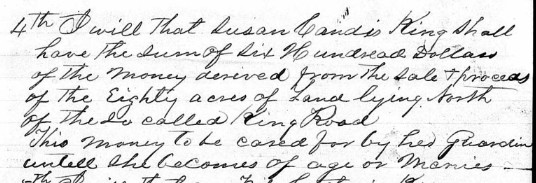 4th I will that Susan Candis King Shall
have the Sum of Six Hundread Dollars
of the Money derived from the Sale & Proceeds
of the Eighty acres of Land lying North
of the So called King Road
This Money to be cared for by her Guardin
untell She becomes of age or Marries